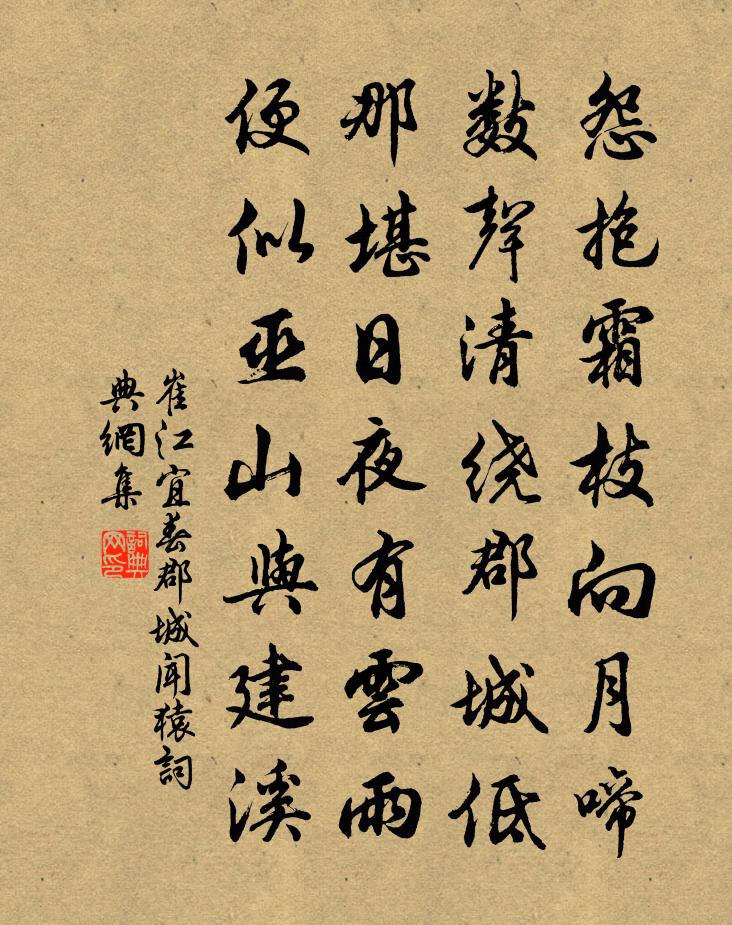 怨抱霜枝向月啼
数聲清绕郡城低
那堪日夜有雲雨
便似巫山與建溪
崔江宜春郡城闻猿詞
典網集
詞典
网印